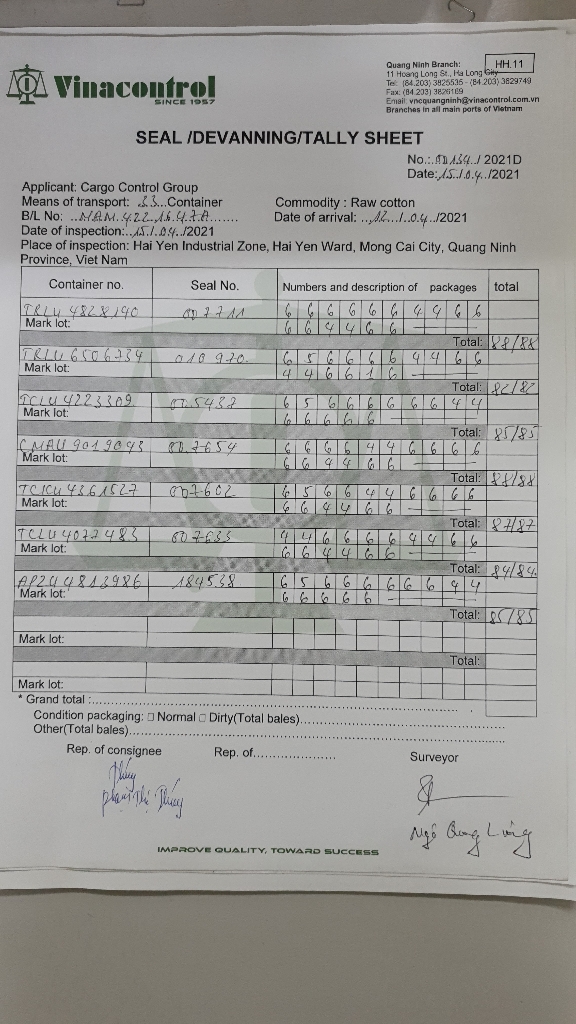 Vinacontrol
SINCE 1957
Quang Ninh Branch:
HH.11
11 Hoang Long St., Ha Long City
Tel: (84.203) 3825535 - (84.203) 3829749
Fax: (84.203) 3826169
Email: vncquangninh@vinacontrol.com.vn
Branches in all main ports of Vietnam
SEAL /DEVANNING/TALLY SHEET
No.: 00134 / 2021D
Date: 15/04/2021
Applicant: Cargo Control Group
Means of transport: 33 Container Commodity : Raw cotton
B/L No: NAM.422 16 47A Date of arrival: 12/04/2021
Date of inspection: 15/04/2021
Place of inspection: Hai Yen Industrial Zone, Hai Yen Ward, Mong Cai City, Quang Ninh
Province, Viet Nam
Container no. Seal No. Numbers and description of packages total
TRLU 4828190 007711 6 6 6 6 6 6 4 4 6 6
Mark lot: 6 6 4 4 6 6
Total: 88/88
TRLU 6506734 010970 6 5 6 6 6 6 4 4 6 6
Mark lot: 4 4 6 6 1 6
Total: 82/82
TCLU 4223309 005432 6 5 6 6 6 6 6 6 4 4
Mark lot: 6 6 6 6 6
Total: 85/85
CMAU 9019043 007654 6 6 6 6 4 4 6 6 6 6
Mark lot: 6 6 4 4 6 6
Total: 88/88
TCKU 4361527 007602 6 5 6 6 4 4 6 6 6 6
Mark lot: 6 6 4 4 6 6
Total: 87/87
TCLU 4077483 007633 4 4 6 6 6 6 4 4 6 6
Mark lot: 6 6 4 4 6 6
Total: 84/84
APZU 4813986 184538 6 5 6 6 6 6 6 6 4 4
Mark lot: 6 6 6 6 6
Total: 85/85
Mark lot:
Total:
Mark lot:
* Grand total :
Condition packaging: □ Normal □ Dirty(Total bales)
Other(Total bales)
Rep. of consignee Rep. of Surveyor
Phạm Thị
Ngô Quang
IMPROVE QUALITY, TOWARD SUCCESS